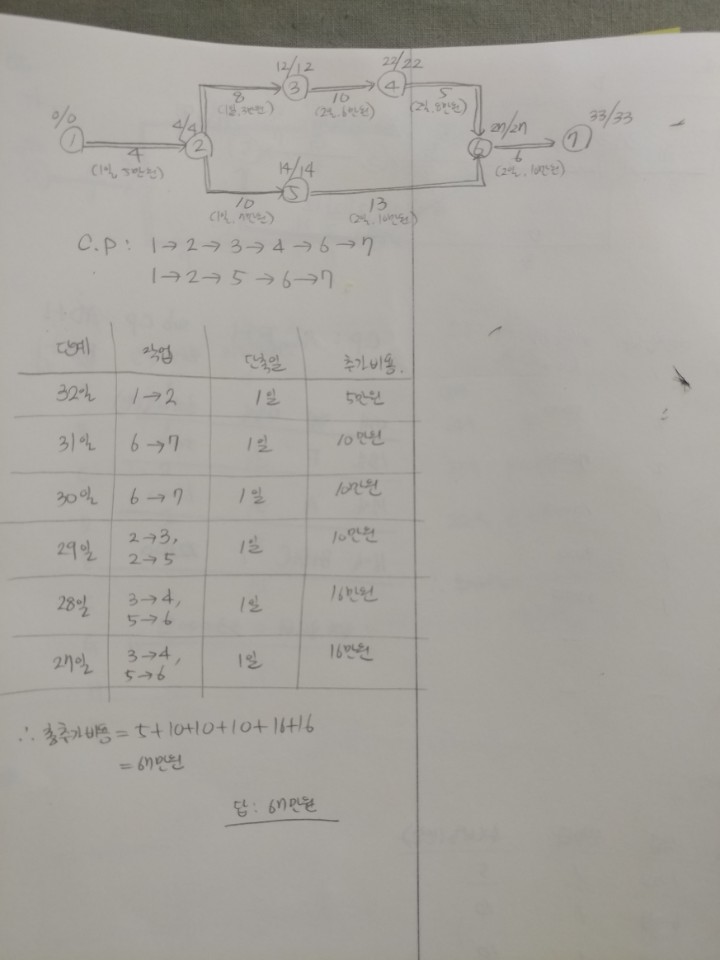 12/12
22/22
8
③
10
④
5
(2일, 6만원)
(2일, 8만원)
0/0
4/4
27/27
33/33
①
4
②
⑥
6
⑦
(1일, 5만원)
(2일, 10만원)
14/14
10
⑤
13
(2일, 10만원)
C.P : 1→2→3→4→6→7
1→2→5→6→7
단계 작업 단축일 추가비용.
32일 1→2 1일 5만원
31일 6→7 1일 10만원
30일 6→7 1일 10만원
29일 2→3, 2→5 1일 10만원
28일 3→4, 5→6 1일 16만원
27일 3→4, 5→6 1일 16만원
∴ 총추가비용 = 5+10+10+10+16+16
= 67만원
답 : 67만원